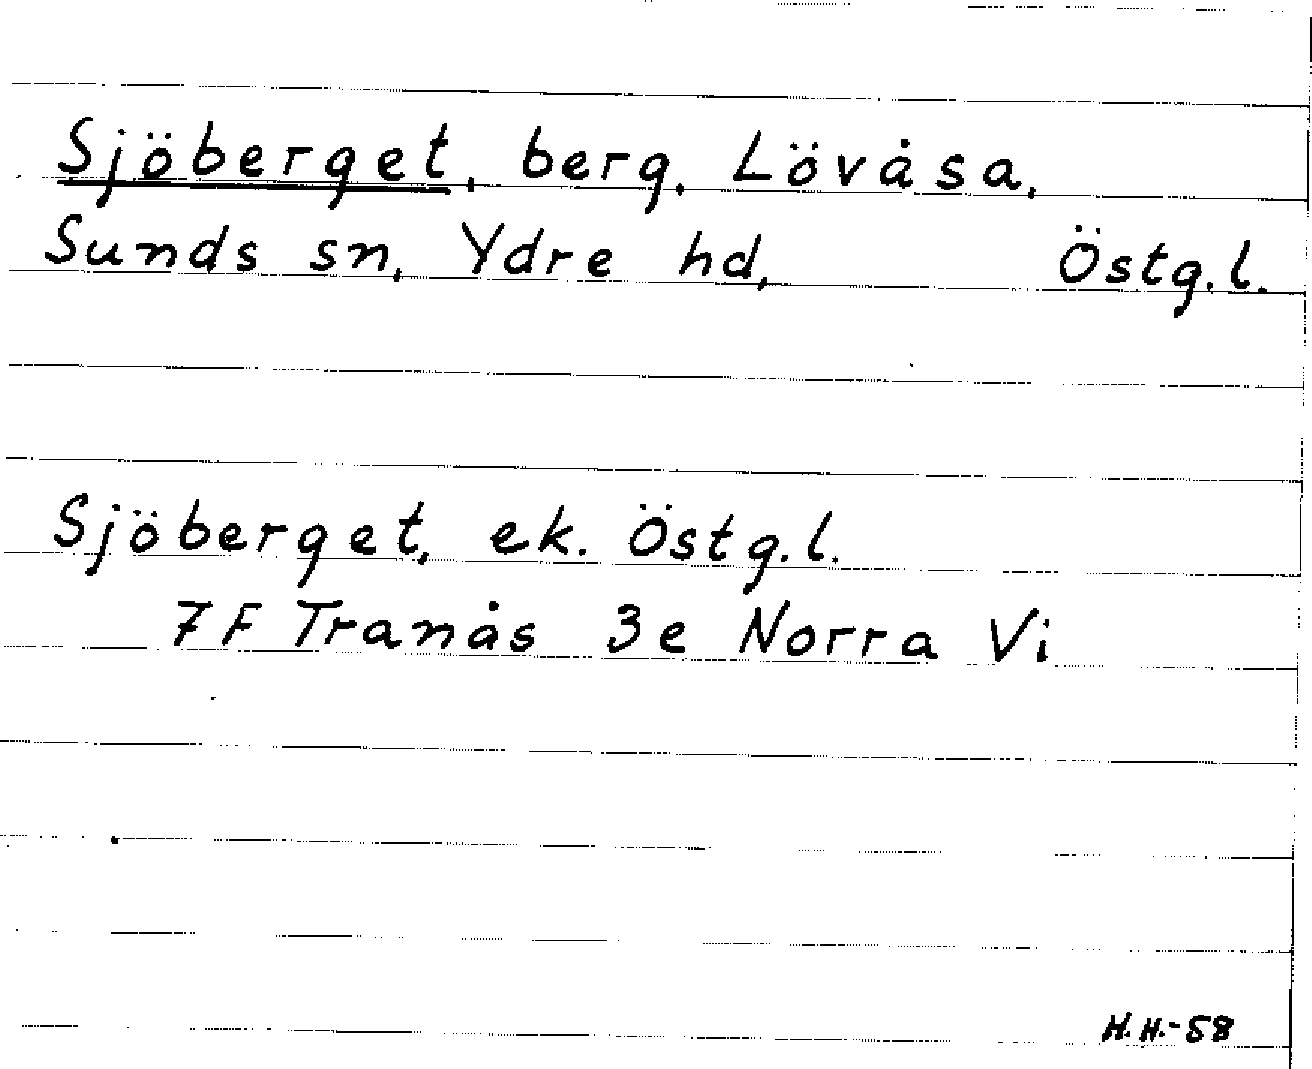 Sjöberget, berg, Lövåsa,
Sunds sn, Ydre hd, Östg.l.
Sjöberget, ek. Östg.l.
7F Tranås 3e Norra Vi
H.H.-58